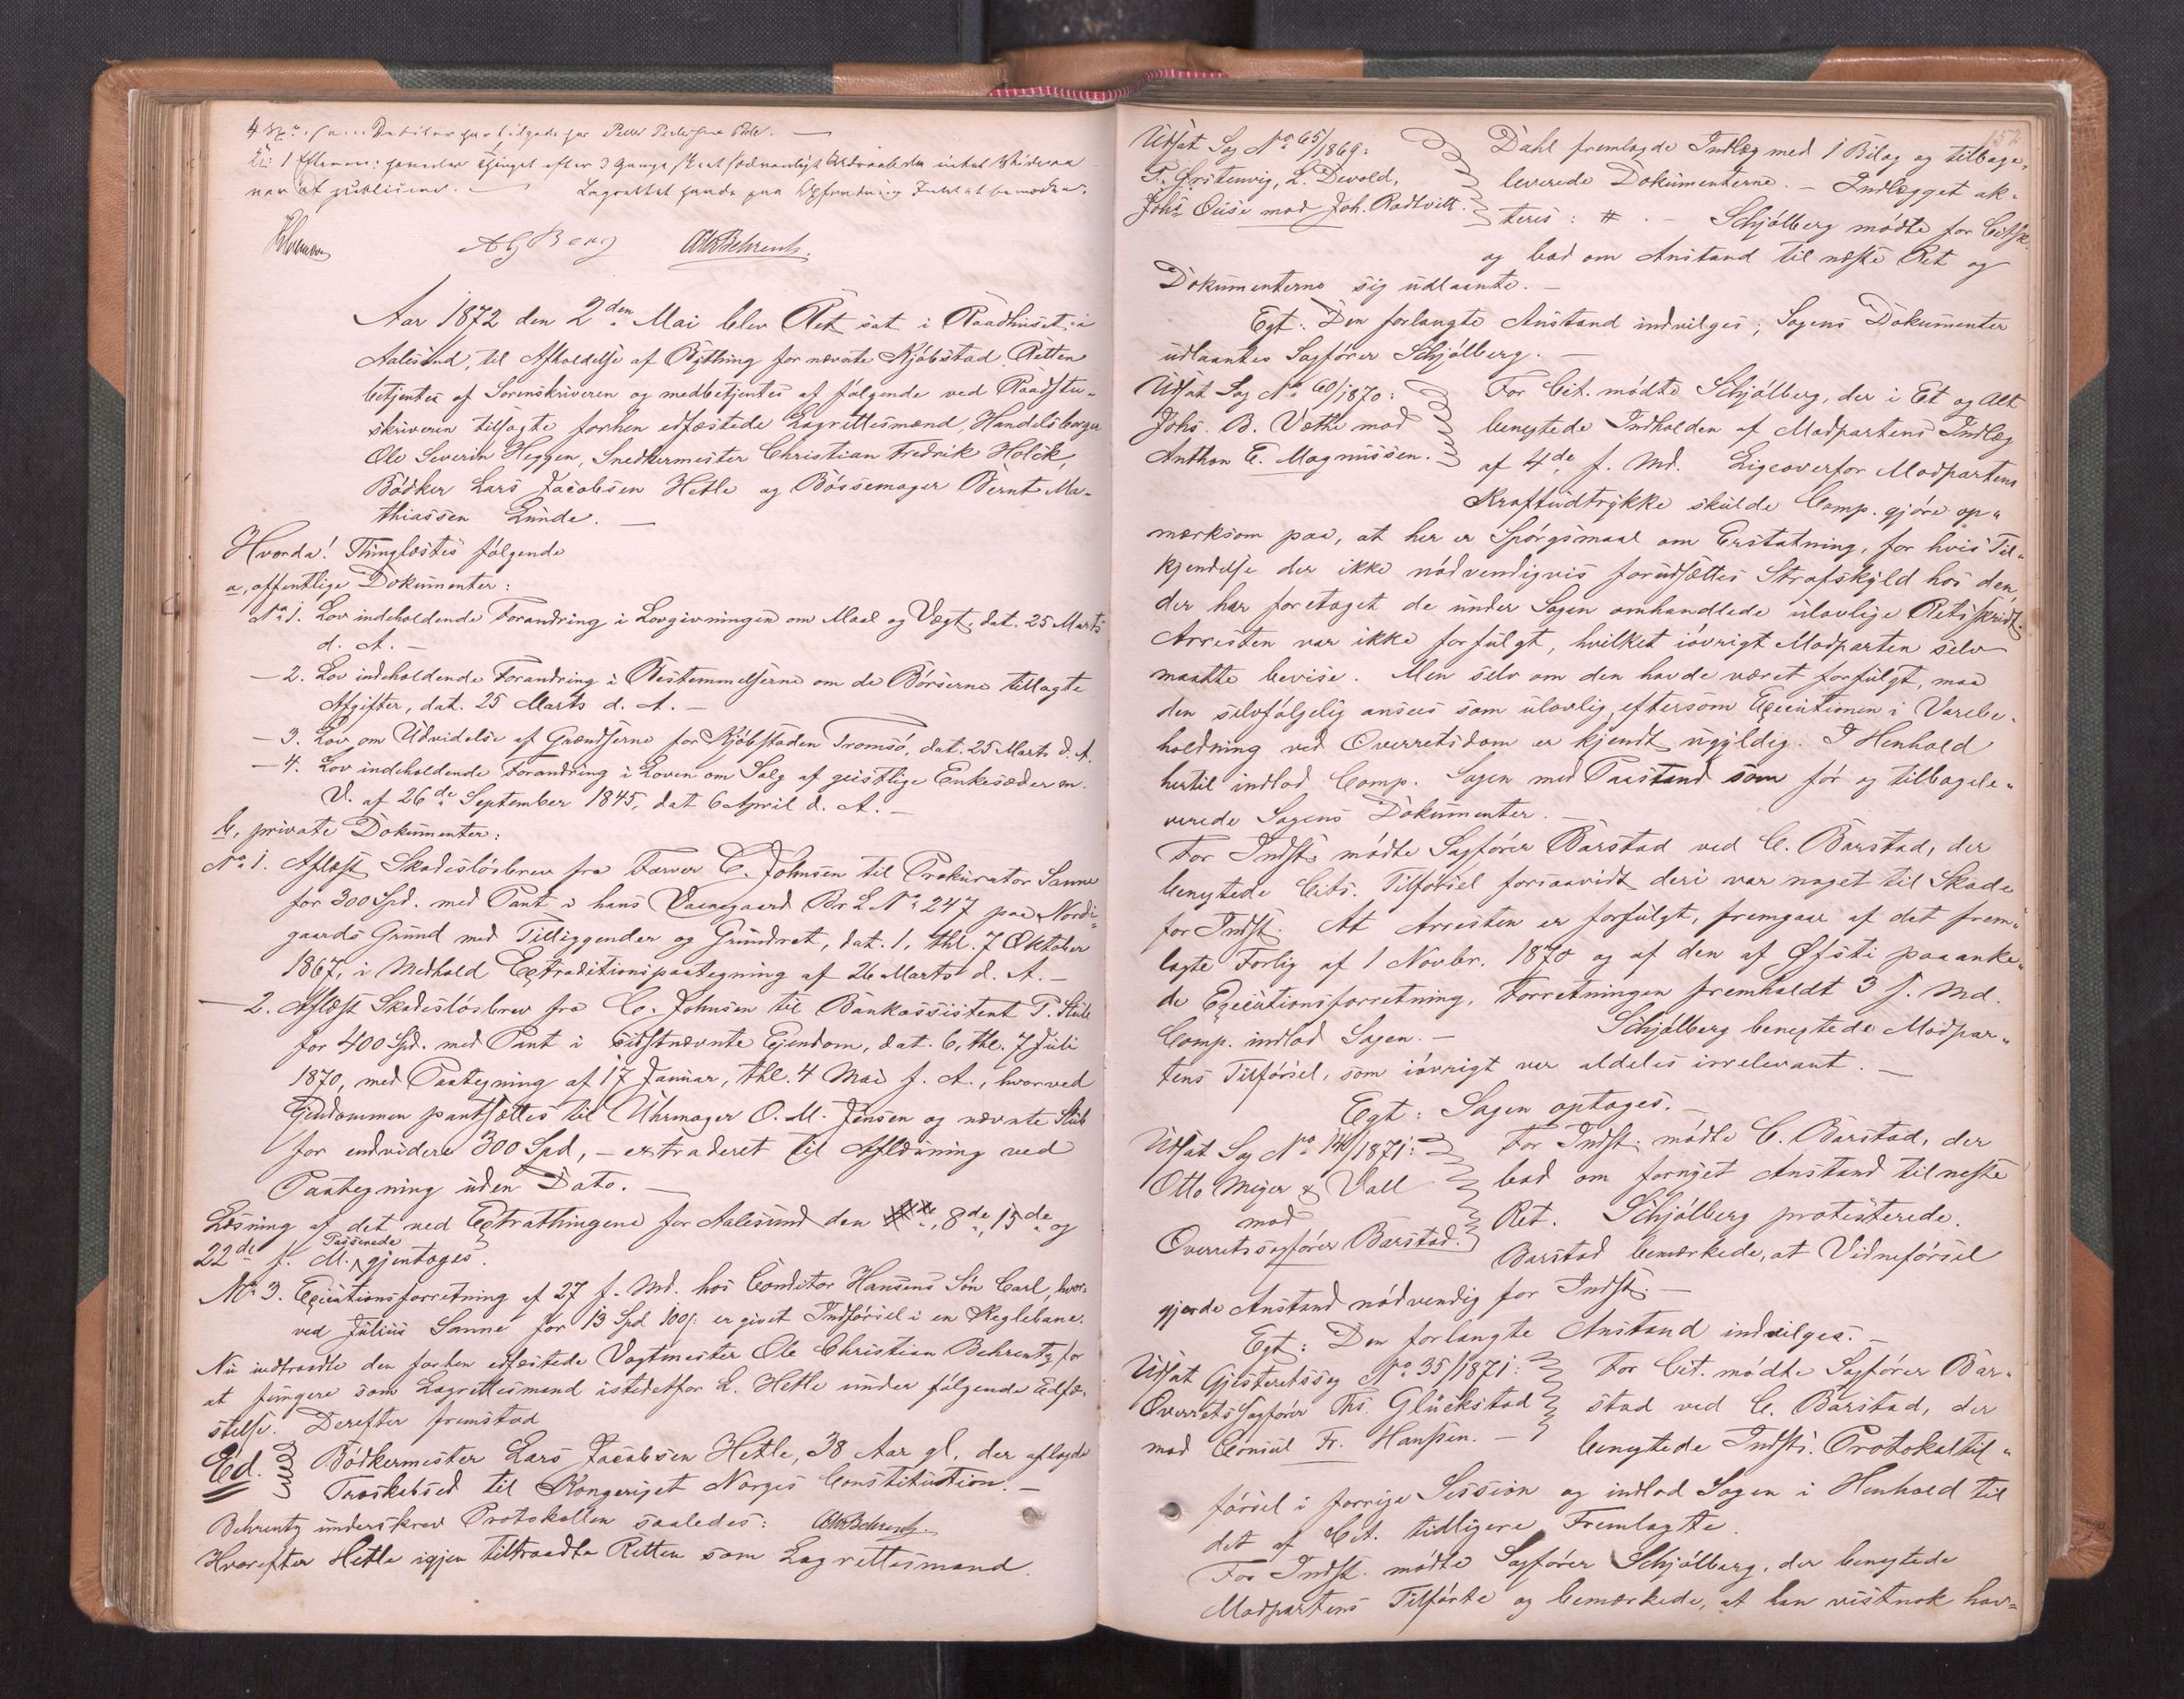 Debitor har tilgode hos Peder
efter 3 Gange
af publicere. Lagrettet
A G Berg OChrBehrentz.
Aar 1872 den 2den Mai blev Ret sat i Raadhuset i
Aalesund, til Afholdelse af Bything for nævnte Kjöbstad. Retten
betjentes af Sorenskriveren og medbetjentes af fölgende ved Raadstu-
skriveren tilsagte forhen edfæstede Lagrettesmænd, Handelsborger
Ole Severin Heggen, Snedkermester Christian Fredrik Holck,
Bödker Lars Jacobsen Hetle og Bössemager Bernt Ma-
thiassen Lunde. —
Hvorda! Thinglæstes fölgende
a, offentlige Dokumenter:
No 1. Lov indeholdende Forandring i Lovgivningen om Maal og Vægt, dat. 25 Marts
d. A. —
— 2. Lov indeholdende Forandring i Bestemmelserne om de Börserne tillagte
Afgifter, dat. 25 Marts d. A. —
— 3. Lov om Udvidelse af Grændserne for Kjöbstaden Tromsö, dat. 25 Marts d. A.
— 4. Lov indeholdende Forandring i Loven om Salg af geistlige Enkesæder m.
V. af 26de September 1845, dat 6 April d. A. —
b, private Dokumenter:
No 1. Aflæst Skadeslösbrev fra Farver C. Johnsen til Prokurator Sanne
for 300 Spd. med Pant i hans Vaanegaard Br L No 247 paa Nordi-
gaards Grund med Tilliggender og Grundret, dat. 1, thl. 7 Oktober
1867, i Medhold Extraditionspaategning af 26 Marts d. A. —
— 2. Aflæst Skadeslösbrev fra C. Johnsen til Bankassistent P. Stub
for 400 Spd. med Pant i sidstnævnte Ejendom, dat. 6, thl. 7 Juli
1870, med Paategning af 17 Januar, thl. 4 Mai f. A., hvorved
Ejendommen pantsættes til Uhrmager O. M. Jensen og nævnte Stub
for endvidere 300 Spd, — extraderet til Aflæsning ved
Paategning uden Dato. —
Læsning af det ved Extrathingene for Aalesund den 8de, 15de og
22de f. M. Passerede gjentoges.
No 3. Executionsforretning af 27 f. Md. hos Conditor Hansens Sön Carl, hvor-
ved Julius Sanne for 13 Spd 100 s. er givet Indförsel i en Keglebane.
Nu indtraadte den forhen edfæstede Vagtmester Ole Christian Behrentz for
at fungere som Lagrettesmand istedetfor L. Hetle under fölgende Edfæ-
stelse. Derefter fremstod
Ed. Bödkermester Lars Jacobsen Hetle, 38 Aar gl., der aflagde
Troskabsed til Kongeriget Norges Constitution. —
Behrentz underskrev Protokollen saaledes: OChrBehrentz.
Hvorefter Hetle igjen tiltraadte Retten som Lagrettesmand.
152
Udsat Sag No 65/1869: Dahl fremlagde Indlæg med 1 Bilag og tilbage-
P. Örstenvig, L. Devold, leverede Dokumenterne. — Indlægget ak-
Johs Ouse mod Joh. Rodtvitt. teres: # . — Schjölberg mödte for Cits.
og bad om Anstand til næste Ret og
Dokumenterne sig udlaante. —
Egt: Den forlangte Anstand indvilges; Sagens Dokumenter
udlaantes Sagförer Schjölberg. —
Udsat Sag No 60/1870: For Cit. mödte Schjölberg, der i Et og Alt
Johs. B. Væthe mod benegtede Indholden af Modpartens Indlæg
Anthon E. Magnussen. af 4de f. Md. Ligeoverfor Modpartens
Kraftudtrykke skulde Comp. gjöre op-
mærksom paa, at her er Spörgsmaal om Erstatning, for hvis Til-
kjendelse der ikke nödvendigvis forudsættes Strafskyld hos den,
der har foretaget de under Sagen omhandlede ulovlige Retsskridt.
Arresten var ikke forfulgt, hvilket iövrigt Modparten selv
maatte bevise. Men selv om den havde været forfulgt, maa
den selvfölgelig ansees som ulovlig, eftersom Executionen i Varebe-
holdning ved Overretsdom er kjendt ugyldig. I Henhold
hertil indlod Comp. Sagen med Paastand som för og tilbagele-
verede Sagens Dokumenter. —
For Indst. mödte Sagförer Barstad ved C. Barstad, der
benegtede Cits. Tilförsel forsaavidt deri var noget til Skade
for Indst. At Arresten er forfulgt, fremgaar af det frem-
lagte Forlig af 1 Novbr. 1870 og af den af Öfsti paaanke-
de Executionsforretning. Forretningen fremholdt 3 f. Md.
Comp. indlod Sagen. — Schjölberg benegtede Modpar-
tens Tilförsel, som iövrigt var aldeles irrelevant. —
Egt: Sagen optages. —
Udsat Sag No 14/1871: For Indst. mödte C. Barstad, der
Otto Meyer & Vall bad om fornyet Anstand til neste
mod Ret. Schjölberg protesterede.
Overretssagförer Barstad. Barstad bemærkede, at Vidneförsel
gjorde Anstand nödvendig for Indst. —
Egt: Den forlangte Anstand indvilges. —
Udsat Gjesteretssag No 35/1871: For Cit. mödte Sagförer Bar-
Overretssagförer Ths. Glückstad stad ved C. Barstad, der
mod Consul Fr. Hanssen. — benegtede Indsts. Protokoltil-
försel i forrige Session og indlod Sagen i Henhold til
det af Cit. tidligere Fremlagte.
For Indst. mödte Sagförer Schjölberg, der benegtede
Modpartens Tilförte og bemærkede, at han vistnok hav-